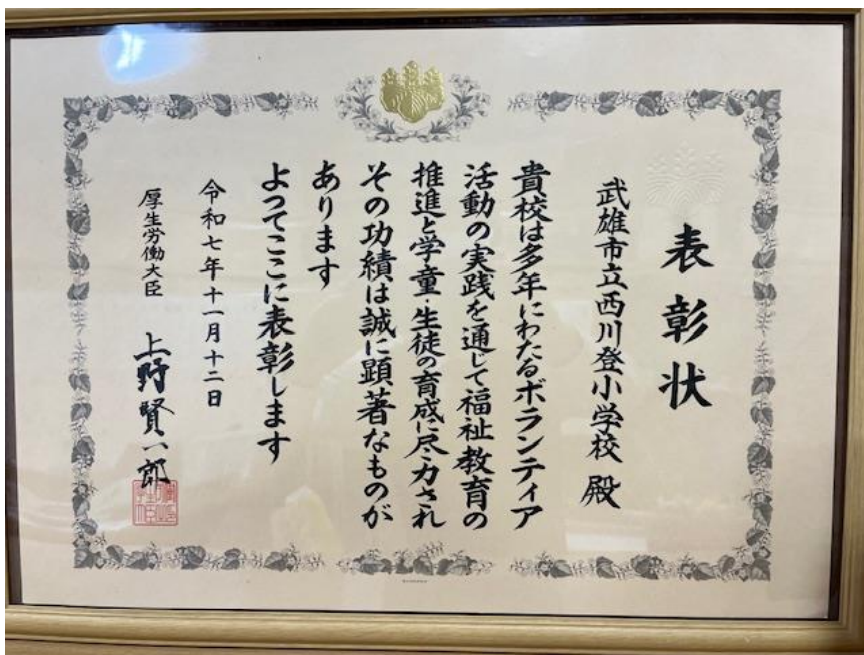 表彰状
武雄市立西川登小学校 殿
貴校は多年にわたるボランティア
活動の実践を通じて福祉教育の
推進と学童・生徒の育成に尽力され
その功績は誠に顕著なものが
あります
よってここに表彰します
令和七年十一月十二日
厚生労働大臣 上野賢一郎